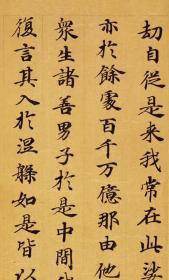 劫自従是来我常在此娑
亦於餘處百千万億那由他
衆生諸善男子於是中間
復言其入於涅槃如是皆以